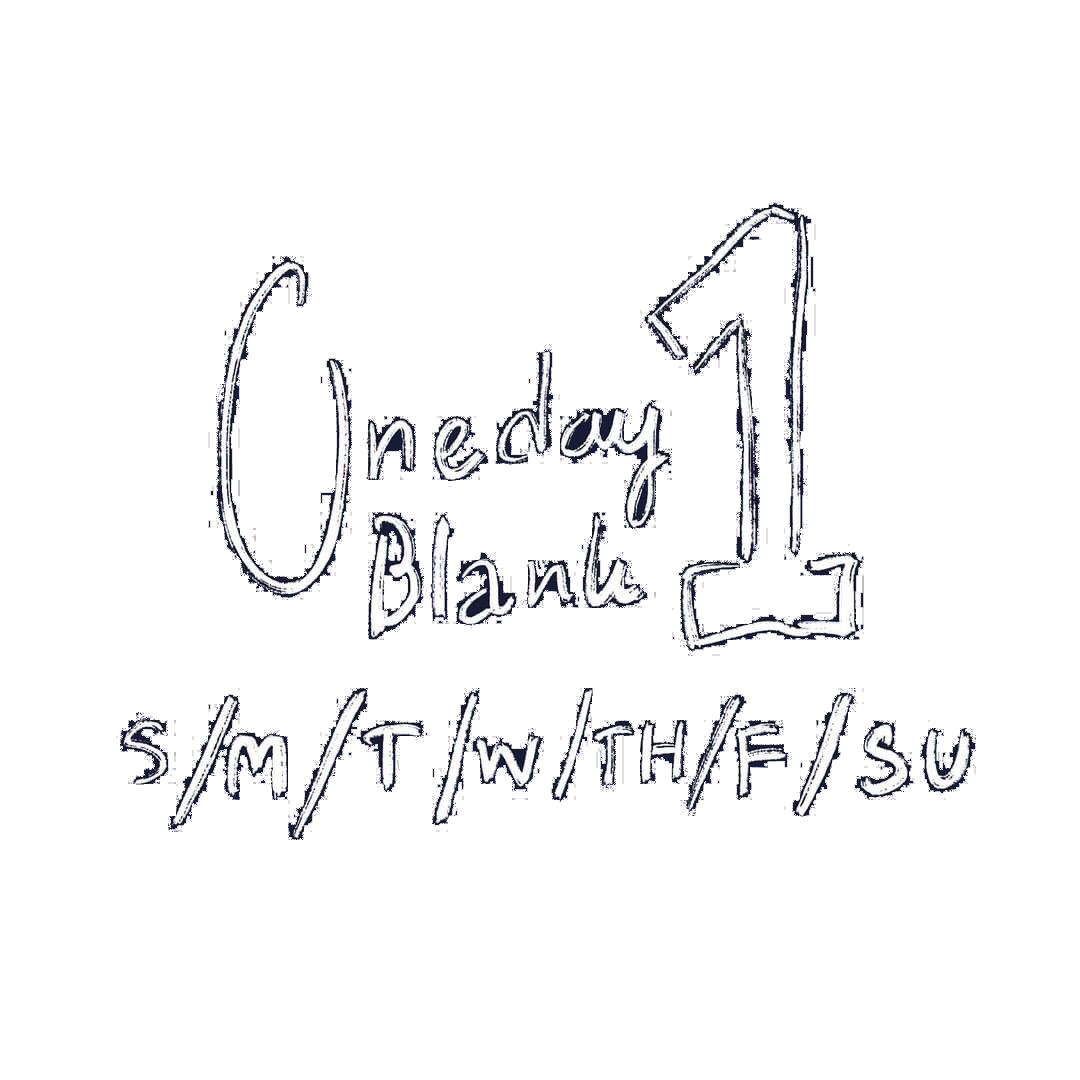 Oneday 1
Blank
S/M/T/W/TH/F/SU